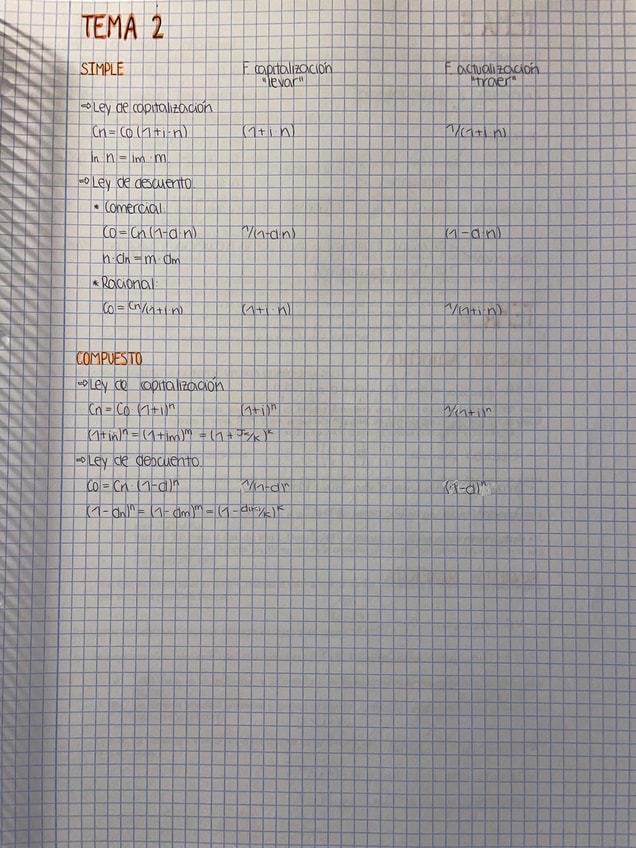 TEMA 2
SIMPLE F capitalización F actualización
"llevar" "traer"
⇒ Ley de capitalización
Cn = Co (1+i·n) (1+i·n) 1/(1+i·n)
in·n = im·m
⇒ Ley de descuento
* Comercial
Co = Cn (1-d·n) 1/(1-d·n) (1-d·n)
n·dn = m·dm
* Racional
Co = Cn/(1+i·n) (1+i·n) 1/(1+i·n)
COMPUESTO
⇒ Ley de capitalización
Cn = Co (1+i)ⁿ (1+i)ⁿ 1/(1+i)ⁿ
(1+in)ⁿ = (1+im)ᵐ = (1+Jk/k)ᵏ
⇒ Ley de descuento
Co = Cn·(1-d)ⁿ 1/(1-d)ⁿ (1-d)ⁿ
(1-dn)ⁿ = (1-dm)ᵐ = (1-d(k)/k)ᵏ